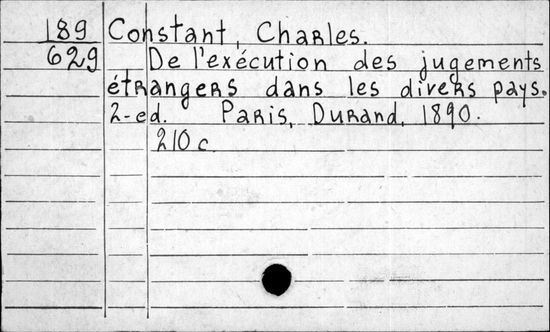 189 Constant, Charles.
629 De l'exécution des jugements
étrangers dans les divers pays.
2-ed. Paris, Durand, 1890.
210 c.